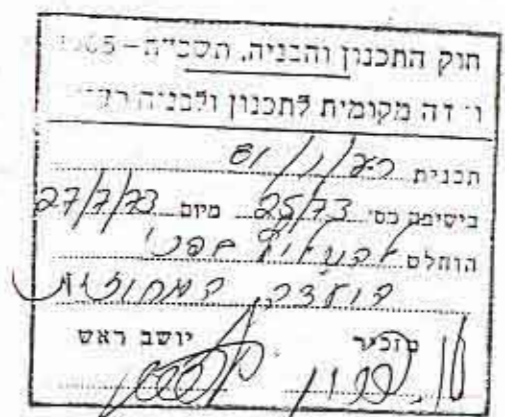 חוק התכנון והבניה, תשכ״ה–1965
ו דה מקומית לתכנון ולבניה
תכנית 81/1/
בישיבה מס׳ 25/73 מיום 27/7/73
הוחלט להמליץ בפני
הועדה המחוזית
מזכיר יושב ראש